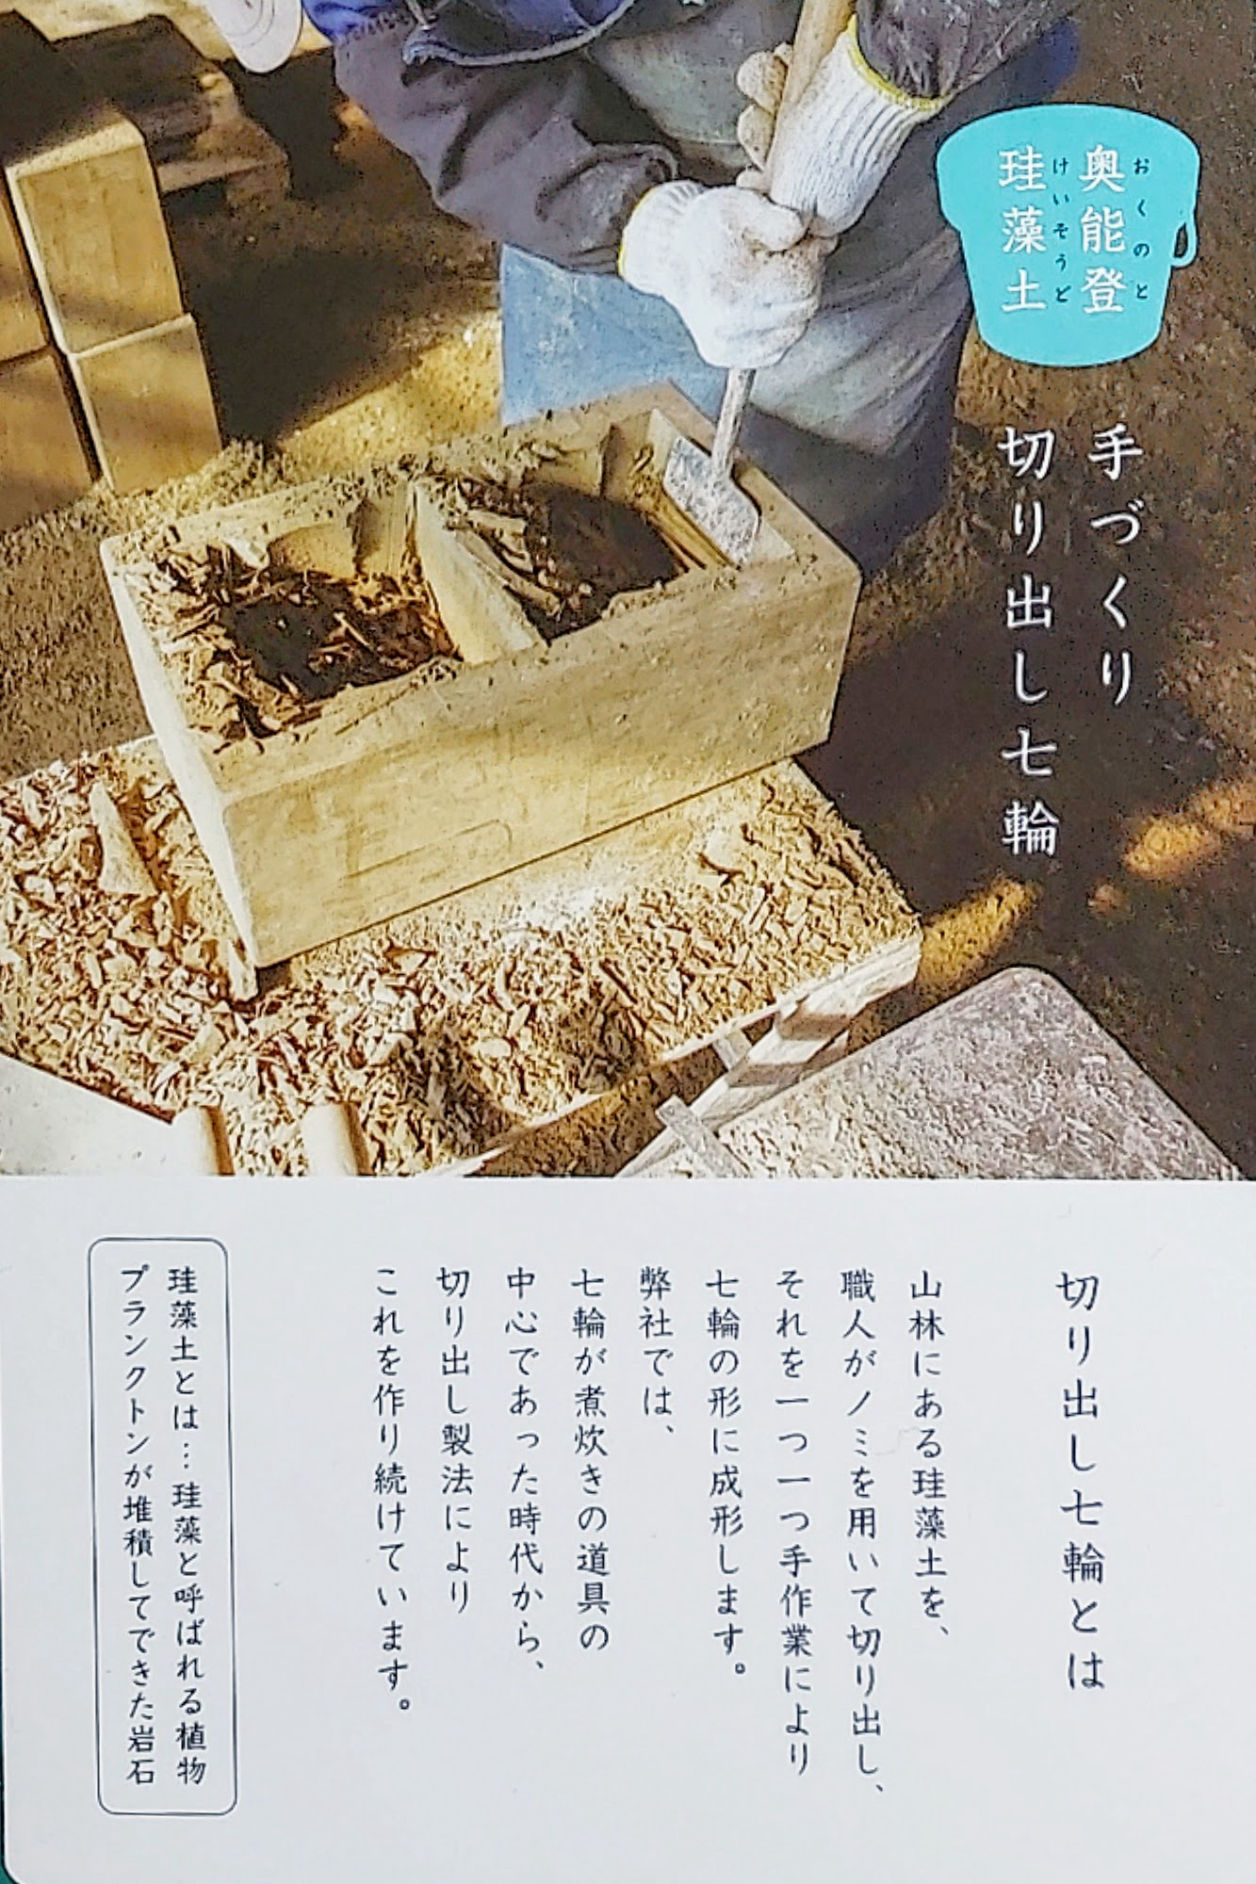 奥能登
おくのと
珪藻土
けいそうど
手づくり
切り出し七輪
切り出し七輪とは
山林にある珪藻土を、
職人がノミを用いて切り出し、
それを一つ一つ手作業により
七輪の形に成形します。
弊社では、
七輪が煮炊きの道具の
中心であった時代から、
切り出し製法により
これを作り続けています。
珪藻土とは…珪藻と呼ばれる植物
プランクトンが堆積してできた岩石